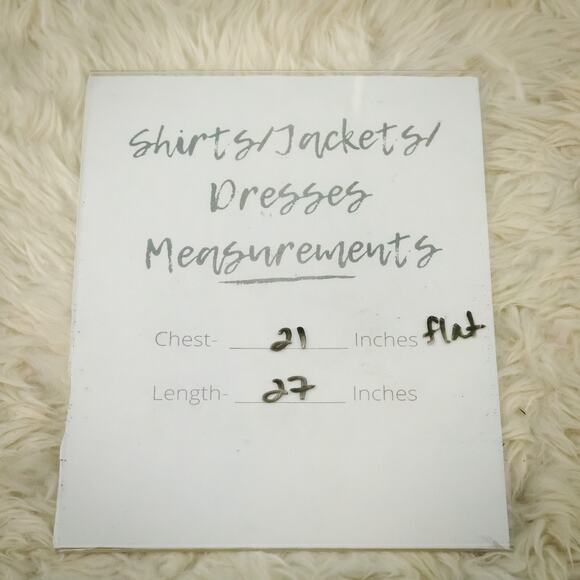 Shirts/Jackets/
Dresses
Measurements
Chest- 21 Inches flat
Length- 27 Inches